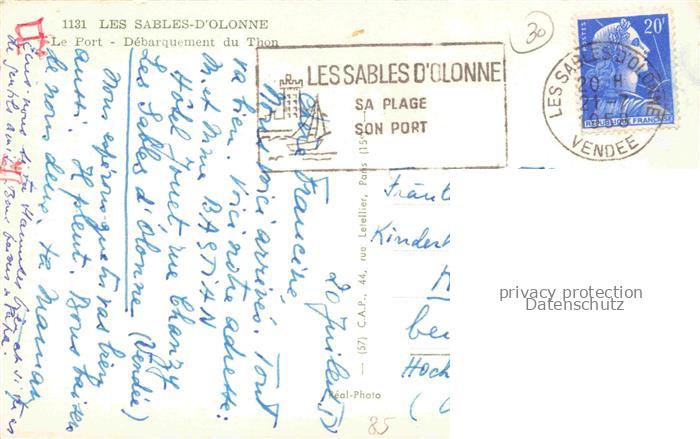 1131 LES SABLES-D'OLONNE
Le Port - Débarquement du Thon
30
LES SABLES D'OLONNE
SA PLAGE
SON PORT
LES SABLES D'OLONNE
20 H
VENDEE
POSTES
20F
REPUBLIQUE FRANCAISE
20 Juillet
Chère Francine,
Nous voici arrivés. Tout
va bien. Voici notre adresse:
M. et Mme BASTIAN
Hôtel Jouet rue Chanzy
Les Sables d'Olonne (Vendée)
Nous espérons que tu vas bien
aussi. Il pleut. Bons baisers
de nous deux ta Maman
Papa.
(57) C.A.P., 44, rue Letellier, Paris (15e)
Réal-Photo
Kinder
Hoch
85
privacy protection
Datenschutz